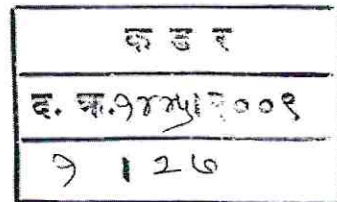 क ड र
द. क्र.१४४५/२००९
१ | २७